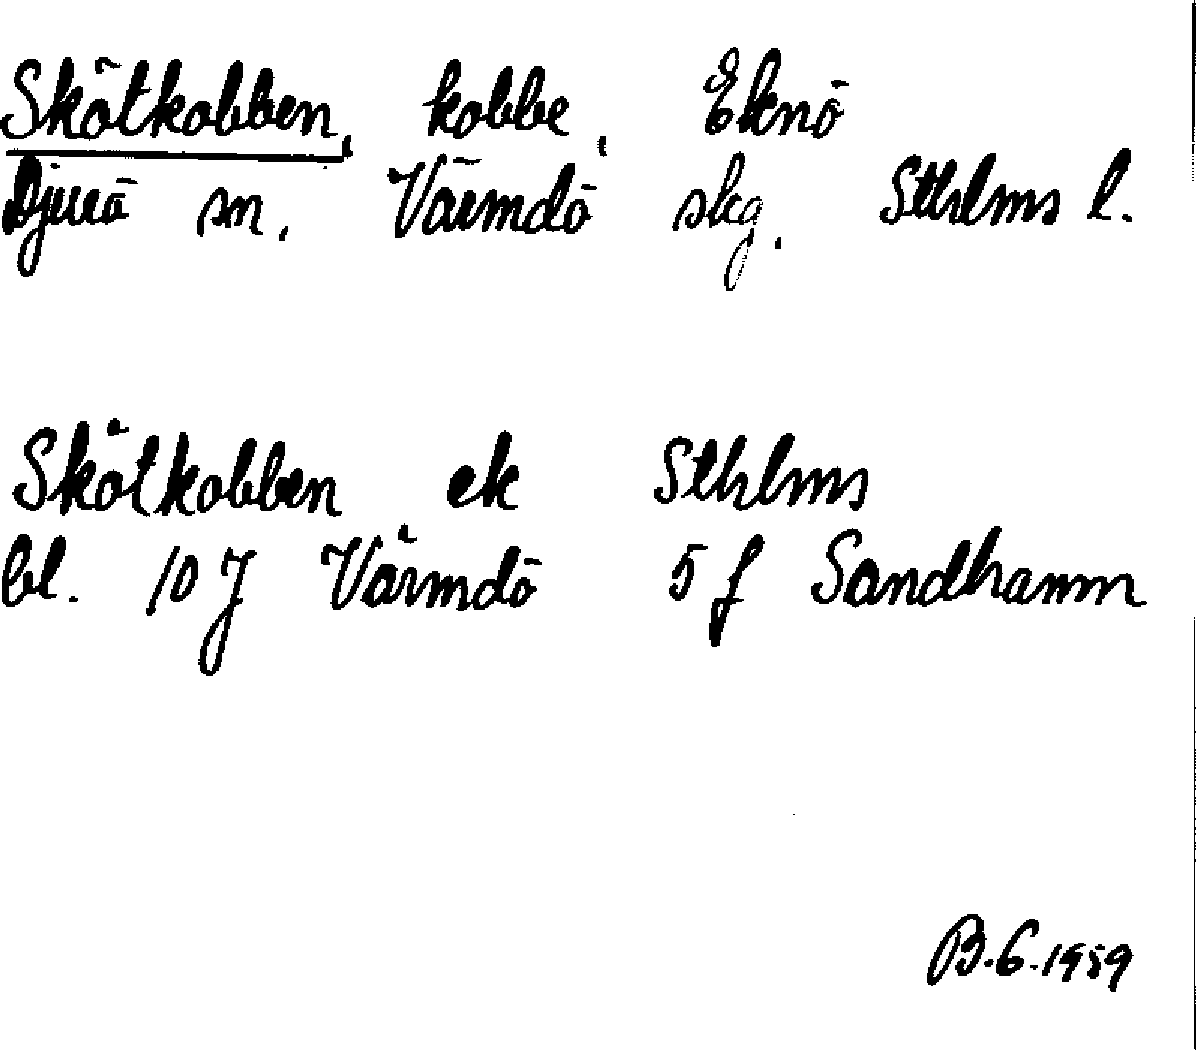 Skötkobben, kobbe, Eknö
Djurö sn, Värmdö skg, Sthlms l.
Skötkobben ek Sthlms
bl. 10 J Värmdö 5 f Sandhamn
B.G. 1959